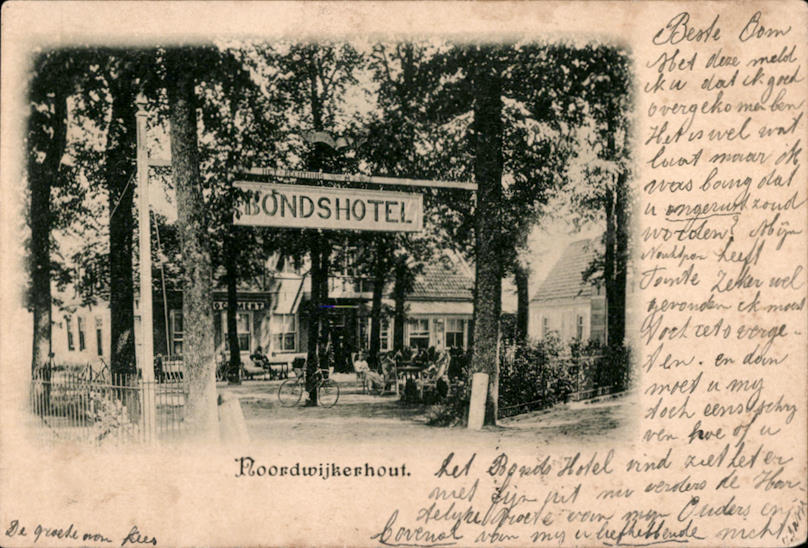 HET RECHTHUIS
BONDSHOTEL
Noordwijkerhout.
Beste Oom
Met deze meld
ik u dat ik goed
overgekomen ben
Het is wel wat
laat maar ik
was bang dat
u ongerust zoud
worden? Mijn
heeft
Tante zeker wel
gevonden ik moest
overge-
ven. en dan
moet u my
toch eens schry
ven hoe of u
het Bonds Hotel vind ziet het er
niet fijn uit nu verders de Har-
telijke groete van mijn Ouders en
Bovenal van my u liefhebbende nicht
De groete van Kees